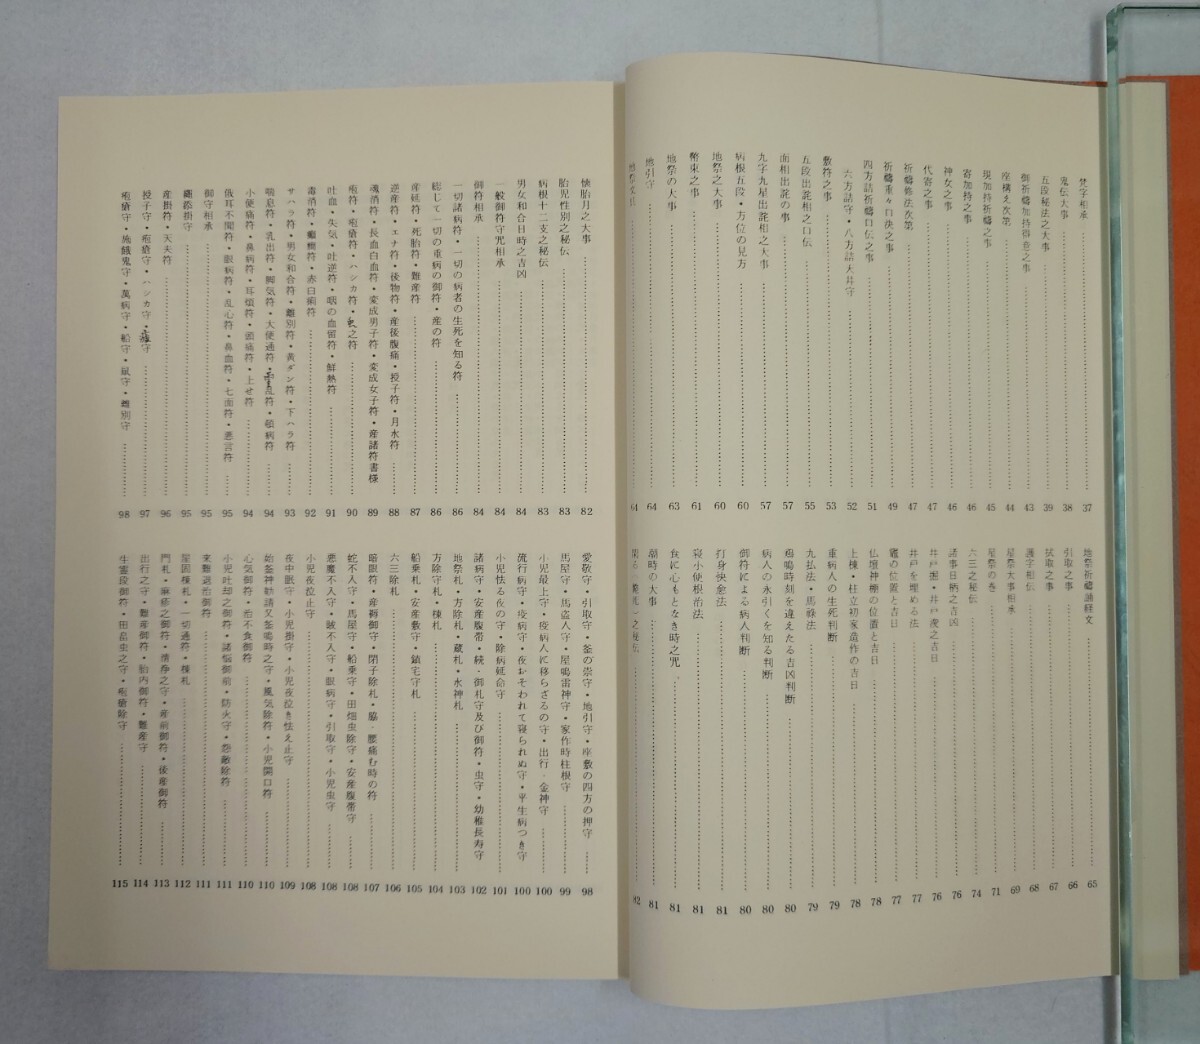 梵字相承 37
鬼伝大事 38
五段秘法之大事 39
御祈禱加持得意之事 43
座構え次第 44
現加持祈禱之事 45
寄加持之事 46
神女之事 46
代寄之事 47
祈禱修法次第 47
祈禱重々口決之事 49
四方詰祈禱口伝之事 51
六方詰守・八方詰大井守 52
敷符之事 53
五段出詫相之口伝 55
面相出詫の事 57
九字九星出詫相之大事 57
病根五段・方位の見方 60
地祭之大事 60
幣束之事 61
地祭の大事 63
地引守 64
64
地祭祈禱誦経文 65
引取之事 66
拭取之事 67
護字相伝 68
星祭大事相承 69
星祭の巻 71
六三之秘伝 74
諸事日柄之吉凶 76
井戸堀・井戸浚之吉日 76
井戸を埋める法 77
竈の位置と吉日 77
仏壇神棚の位置と吉日 78
上棟・柱立初家造作の吉日 78
重病人の生死判断 79
九払法・馬祿法 79
鶏鳴時刻を違えたる吉凶判断 80
病人の永引くを知る判断 80
御符による病人判断 80
打身快愈法 81
寝小便根治法 81
食に心もとなき時之咒 81
潮時の大事 81
82
懐胎月之大事 82
胎児性別之秘伝 83
病根十二支之秘伝 83
男女和合日時之吉凶 84
一般御符守咒相承 84
御符相承 84
一切諸病符・一切の病者の生死を知る符 86
総じて一切の重病の御符・産の符 86
産延符・死胎符・難産符 87
逆産符・エナ符・後物符・産後腹痛・授子符・月水符 88
魂消符・長血白血符・変成男子符・変成女子符・産諸符書様 89
疱符・疱瘡符・ハシカ符・之符 90
吐血・失気・吐逆符・咽の血留符・解熱符 91
毒消符・癲癇符・赤白痢符 92
サハラ符・男女和合符・離別符・黄ダン符・下ハラ符 93
喘息符・乳出符・脚気符・大便通符・霍乱符・頓病符 94
小便痛符・鼻病符・耳煩符・歯痛符・上せ符 94
俄耳不聞符・眼病符・乱心符・鼻血符・七面符・悪言符 95
御守相承 95
符添掛守 95
産掛符・天天符 96
授子守・疱瘡守・ハシカ守・守 97
疱瘡守・施餓鬼守・萬病守・船守・鼠守・離別守 98
愛敬守・引取守・釜の祟守・地引守・座敷の四方の押守 98
馬屋守・馬盗人守・屋鳴雷神守・家作時柱根守 99
小児最上守・疫病人に移らざるの守・出行・金神守 100
流行病守・疫病守・夜おそわれて寝られぬ守・平生病つき守 100
小児怯る夜の守・除病延命守 101
諸病守・安産腹帯・続・御札守及び御符・虫守・幼稚長寿守 102
地祭札・方除札・蔵札・水神札 103
方除守札・棟札 104
船乗札・安産敷守・鎮宅守札 105
六三除札 106
暗眼符・産裲御守・閉子除札・脇・腰痛む時の符 107
蛇不入守・馬屋守・船乗守・田畑虫除守・安産腹帯守 108
悪魔不入守・賊不入守・眼病守・引取守・小児虫守 108
小児夜泣止守 108
夜中眠守・小児掛守・小児夜泣き怯え止守 109
始釜神勧請又釜鳴時之守・風気除符・小児開口符 110
心気御符・若不食御符 110
小児吐却之御符・諸悩御前・防火守・怨敵除符 111
来難退治御符 111
屋固棟札・一切通符・棟札 112
門札・麻疹之御符・清浄之守・産前御符・後産御符 113
出行之守・難産御符・胎内御符・難産守 114
生霊段御符・田畠虫之守・疱瘡除守 115